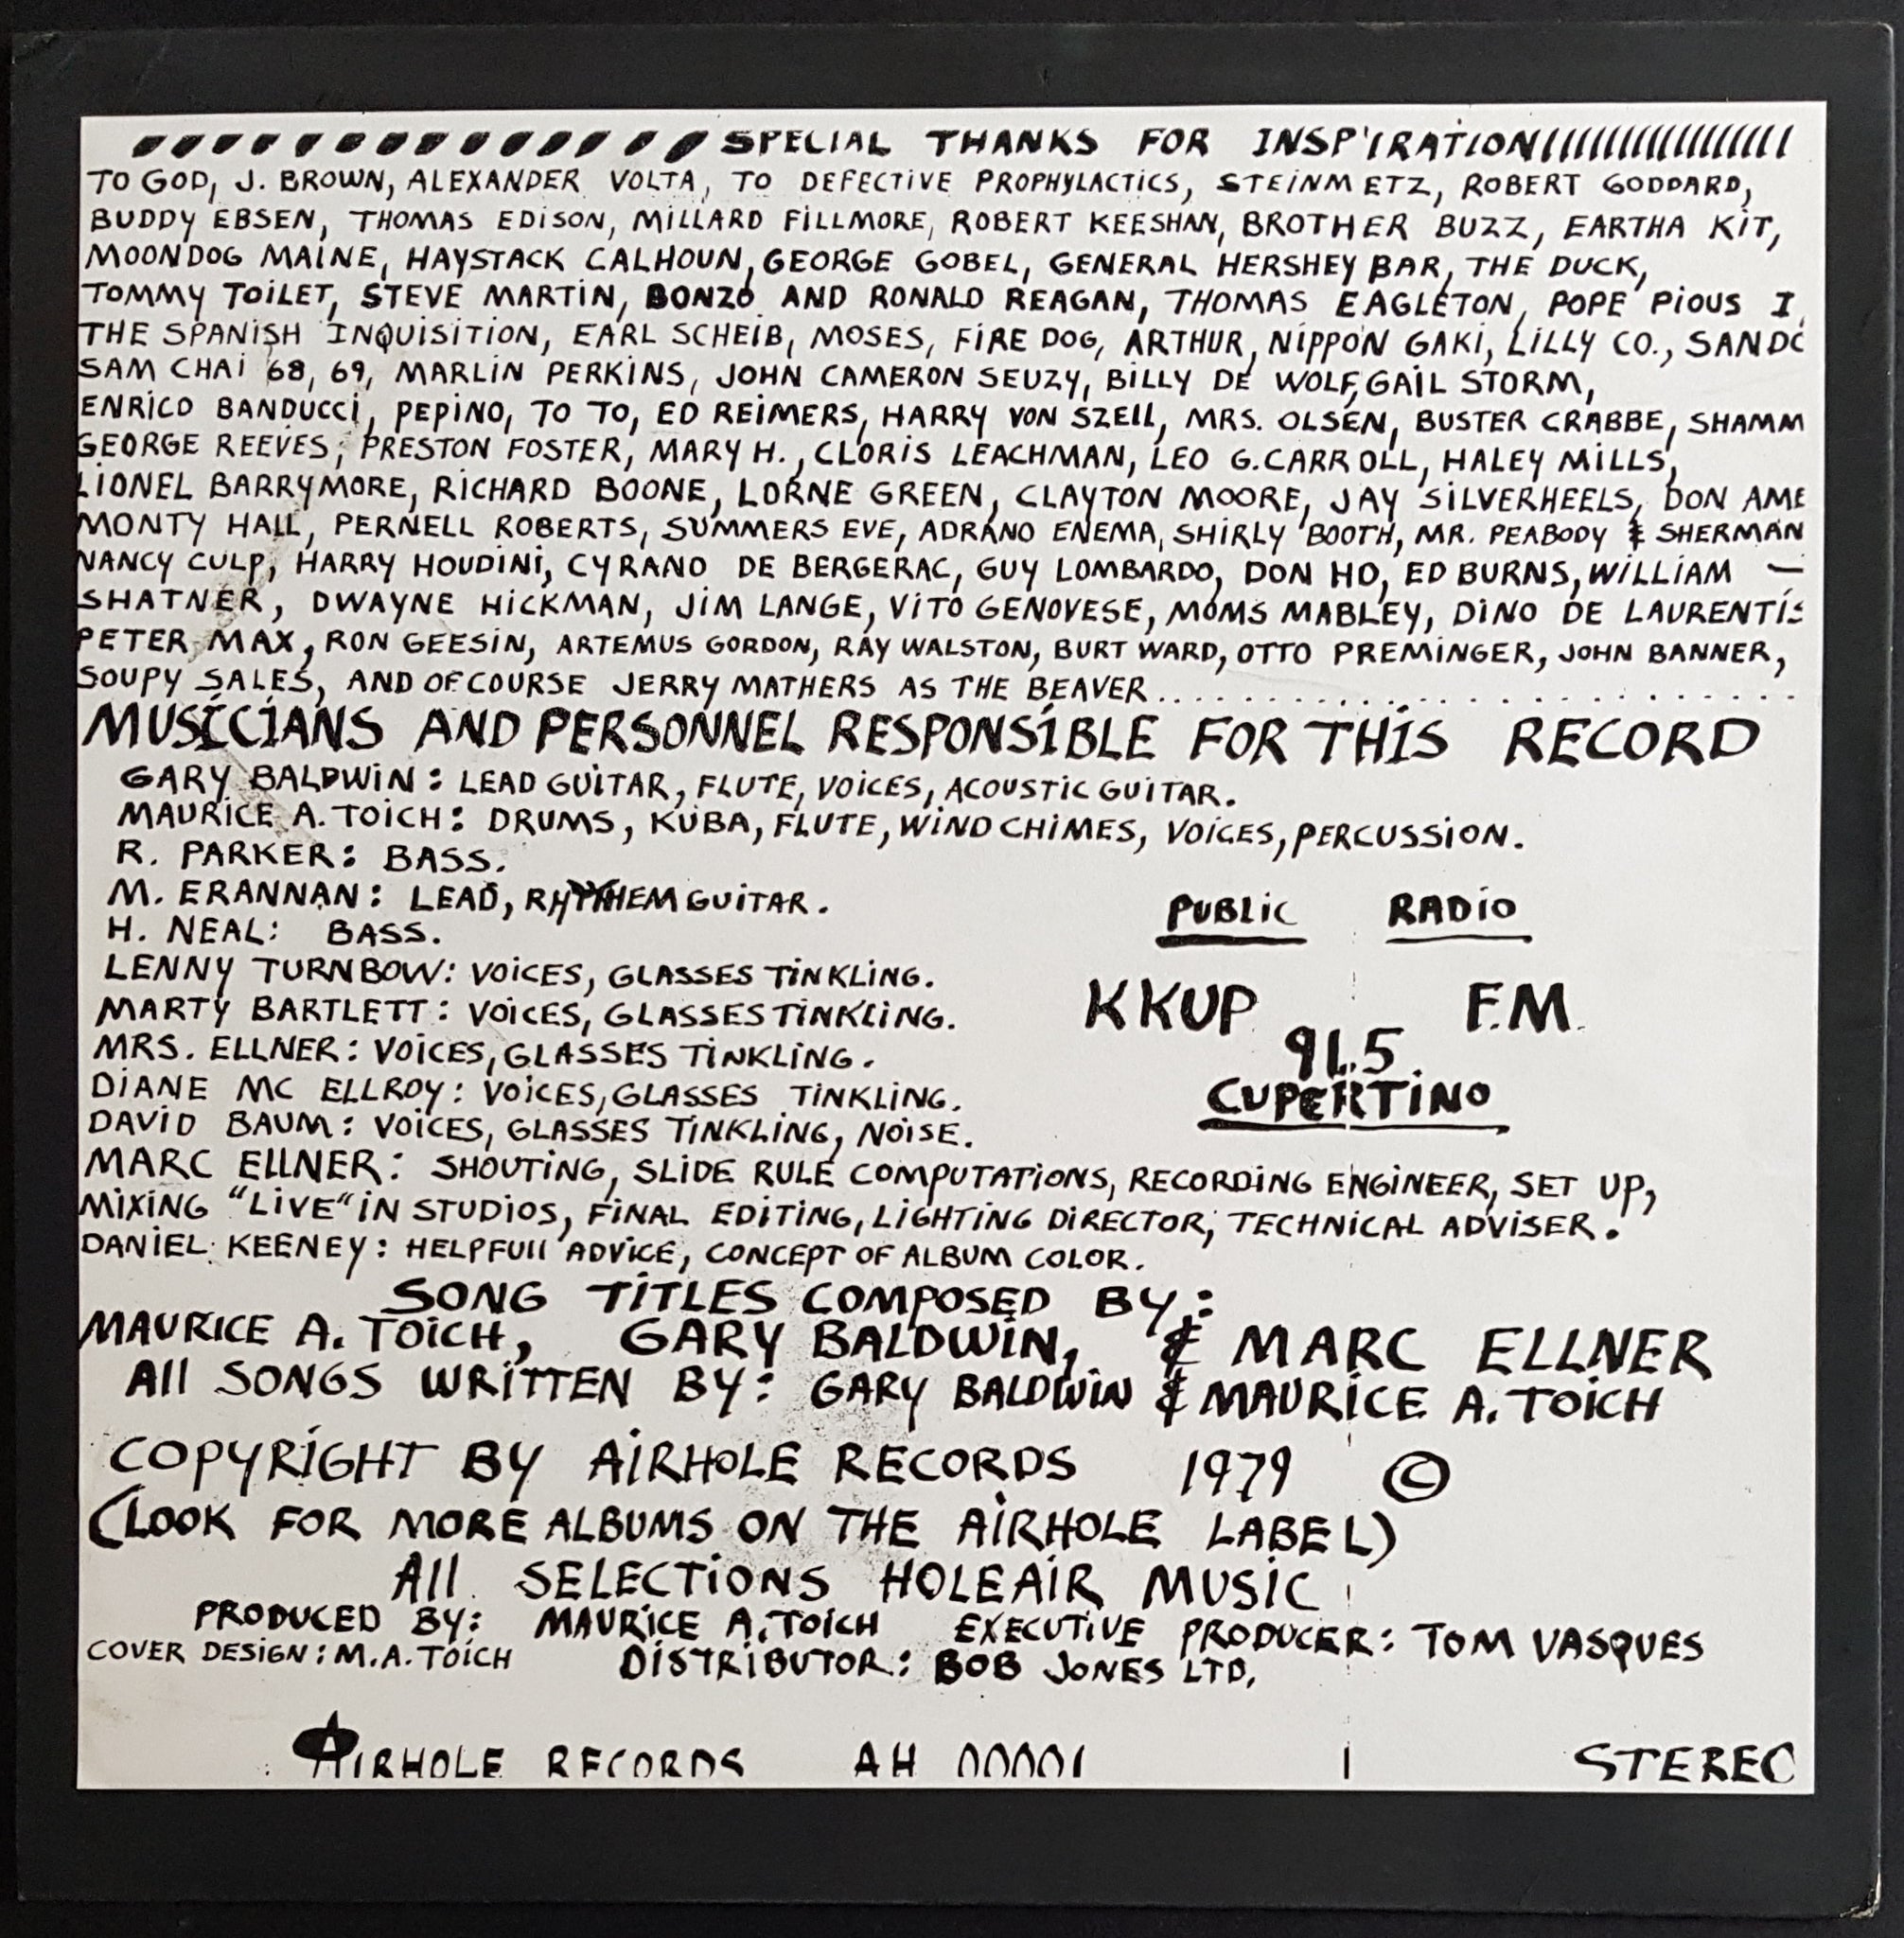 SPECIAL THANKS FOR INSP'IRATION
TO GOD, J. BROWN, ALEXANDER VOLTA, TO DEFECTIVE PROPHYLACTICS, STEINMETZ, ROBERT GODDARD,
BUDDY EBSEN, THOMAS EDISON, MILLARD FILLMORE, ROBERT KEESHAN, BROTHER BUZZ, EARTHA KIT,
MOONDOG MAINE, HAYSTACK CALHOUN, GEORGE GOBEL, GENERAL HERSHEY BAR, THE DUCK,
TOMMY TOILET, STEVE MARTIN, BONZO AND RONALD REAGAN, THOMAS EAGLETON, POPE PIOUS I,
THE SPANISH INQUISITION, EARL SCHEIB, MOSES, FIRE DOG, ARTHUR, NIPPON GAKI, LILLY CO., SANDO
SAM CHAI 68, 69, MARLIN PERKINS, JOHN CAMERON SEUZY, BILLY DE WOLF, GAIL STORM,
ENRICO BANDUCCI, PEPINO, TO TO, ED REIMERS, HARRY VON SZELL, MRS. OLSEN, BUSTER CRABBE, SHAMM
GEORGE REEVES, PRESTON FOSTER, MARY H., CLORIS LEACHMAN, LEO G. CARROLL, HALEY MILLS,
LIONEL BARRYMORE, RICHARD BOONE, LORNE GREEN, CLAYTON MOORE, JAY SILVERHEELS, DON AME
MONTY HALL, PERNELL ROBERTS, SUMMERS EVE, ADRANO ENEMA, SHIRLY BOOTH, MR. PEABODY & SHERMAN
NANCY CULP, HARRY HOUDINI, CYRANO DE BERGERAC, GUY LOMBARDO, DON HO, ED BURNS, WILLIAM —
SHATNER, DWAYNE HICKMAN, JIM LANGE, VITO GENOVESE, MOMS MABLEY, DINO DE LAURENTIS
PETER MAX, RON GEESIN, ARTEMUS GORDON, RAY WALSTON, BURT WARD, OTTO PREMINGER, JOHN BANNER,
SOUPY SALES, AND OF COURSE JERRY MATHERS AS THE BEAVER...........................
MUSICIANS AND PERSONNEL RESPONSIBLE FOR THIS RECORD
GARY BALDWIN: LEAD GUITAR, FLUTE, VOICES, ACOUSTIC GUITAR.
MAURICE A. TOICH: DRUMS, KUBA, FLUTE, WIND CHIMES, VOICES, PERCUSSION.
R. PARKER: BASS.
M. ERANNAN: LEAD, RHYTHEM GUITAR.
H. NEAL: BASS.
LENNY TURNBOW: VOICES, GLASSES TINKLING.
MARTY BARTLETT: VOICES, GLASSES TINKLING.
MRS. ELLNER: VOICES, GLASSES TINKLING.
DIANE MC ELLROY: VOICES, GLASSES TINKLING.
DAVID BAUM: VOICES, GLASSES TINKLING, NOISE.
PUBLIC RADIO
KKUP F.M.
91.5
CUPERTINO
MARC ELLNER: SHOUTING, SLIDE RULE COMPUTATIONS, RECORDING ENGINEER, SET UP,
MIXING "LIVE" IN STUDIOS, FINAL EDITING, LIGHTING DIRECTOR, TECHNICAL ADVISER.
DANIEL KEENEY: HELPFULL ADVICE, CONCEPT OF ALBUM COLOR.
SONG TITLES COMPOSED BY:
MAURICE A. TOICH, GARY BALDWIN, & MARC ELLNER
All SONGS WRITTEN BY: GARY BALDWIN & MAURICE A. TOICH
COPYRIGHT BY AIRHOLE RECORDS 1979 ©
(LOOK FOR MORE ALBUMS ON THE AIRHOLE LABEL)
All SELECTIONS HOLEAIR MUSIC
PRODUCED BY: MAURICE A. TOICH EXECUTIVE PRODUCER: TOM VASQUES
COVER DESIGN: M.A. TOICH DISTRIBUTOR: BOB JONES LTD.
AIRHOLE RECORDS AH 00001 STEREO